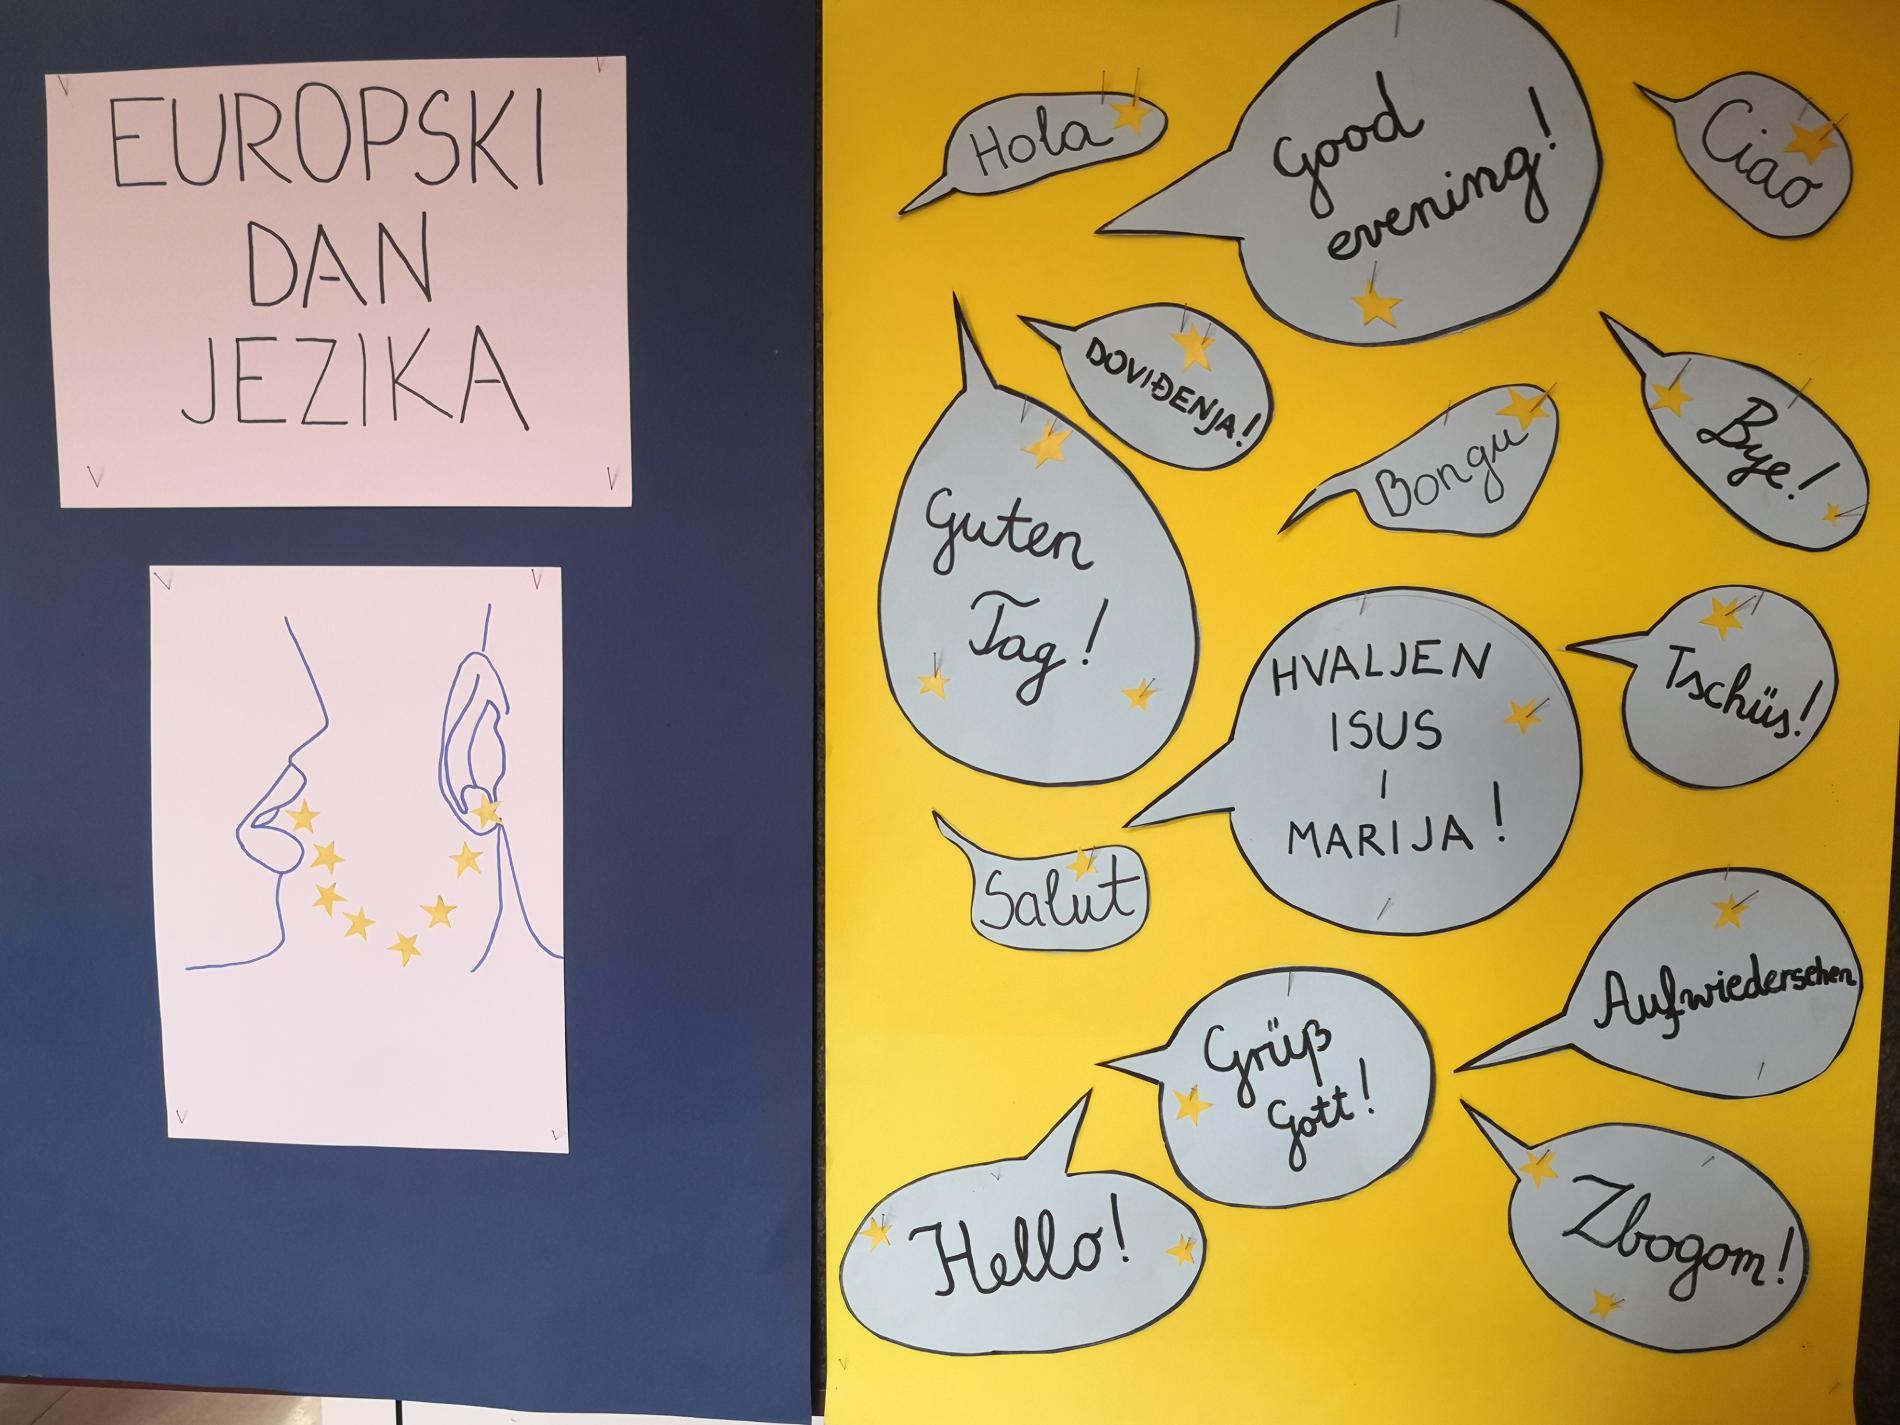 EUROPSKI
DAN
JEZIKA
Hola
Good
evening!
Ciao
DOVIĐENJA!
Bongu
Bye!
Guten
Tag!
HVALJEN
ISUS
I
MARIJA!
Tschüs!
Salut
Aufwiedersehen
Grüß
Gott!
Hello!
Zbogom!